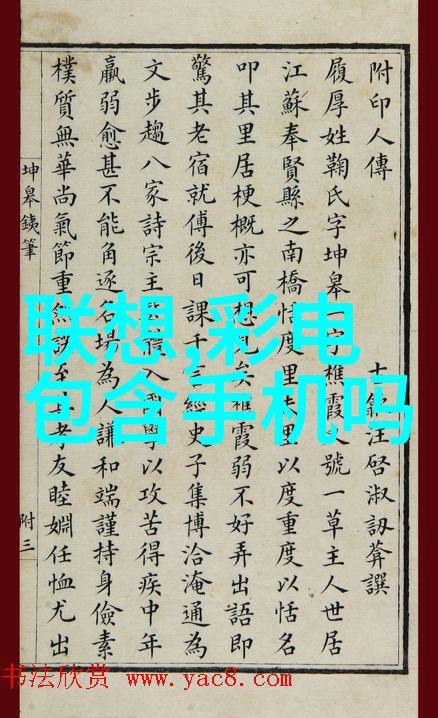 附印人傳
汪啓淑訒葊譔
履厚姓鞠氏字坤皋一字樵霞號一草主人世居
江蘇奉賢縣之南橋度里里以度重度以恬名
叩其里居梗概亦可想見矣樵霞弱不好弄出語即
驚其老宿就傅後日課千言經史子集博洽淹通為
文步趨八家詩宗主入學以攻苦得疾中年
羸弱愈甚不能角逐名場為人謙和端謹持身儉素
樸質無華尚氣節重然諾至孝友睦婣任恤尤出
坤皋銕筆
附三
联想,彩电
包含手机吗
书法欣赏 www.yac8.com